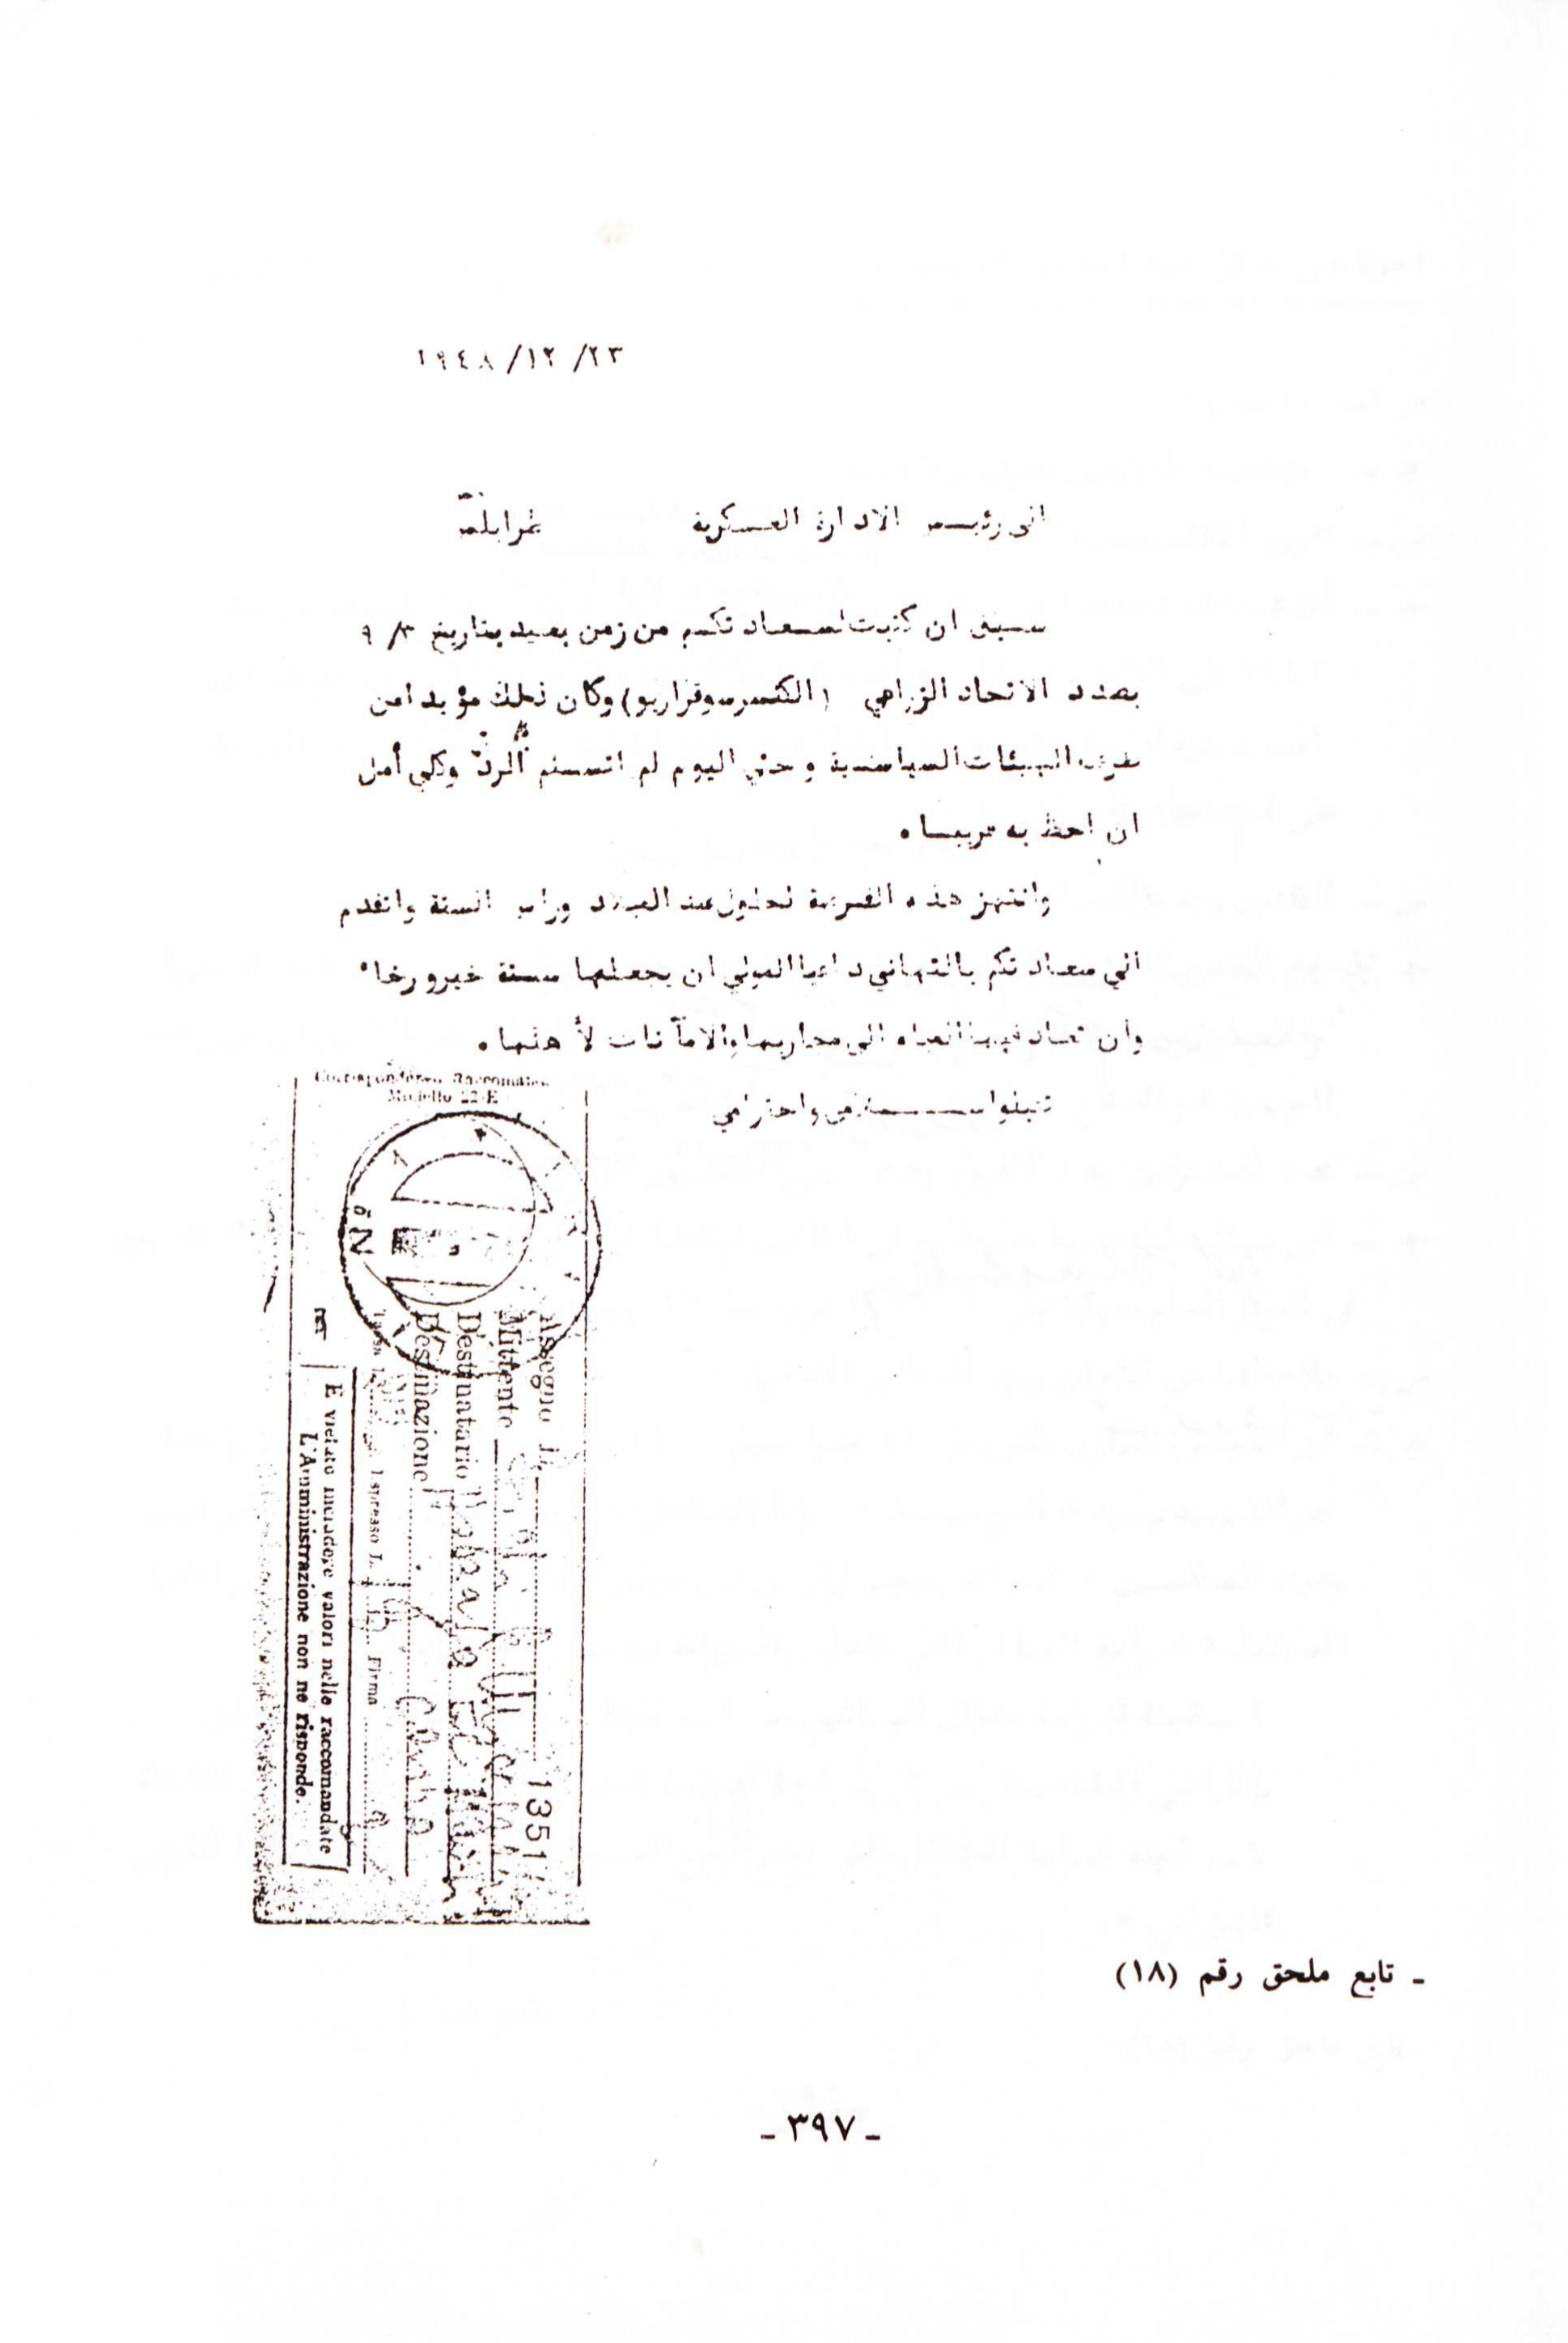 ٢٣/ ١٢/ ١٩٤٨
الى رئيس الادارة العسكرية طرابلس
سبق ان كتبت لسعادتكم من زمن بعيد بتاريخ ٣/ ٩
بصدد الاتحاد الزراعي (الكنسرسوقراريو) وكان ذلك مؤيدا من
الهيئات السياسية وحتي اليوم لم استلم الرد وكلي أمل
ان احظ به قريبا .
وانتهز هذه الفرصة لحلول عيد الميلاد وراس السنة واتقدم
الي سعادتكم بالتهاني داعيا المولي ان يجعلها سنة خير ورخاء
وأن تعاد فيها المياه الى مجاريها والامآنات لأهلها .
تقبلوا سلامي واحترامي
Corrispondenza Raccomandata
Modello 22-E
1351
Assegno L.
Mittente
Destinatario
Destinazione
Tassa L. Espresso L. Firma
È vietato includere valori nelle raccomandate
L'Amministrazione non ne risponde.
- تابع ملحق رقم (١٨)
- ٣٩٧ -